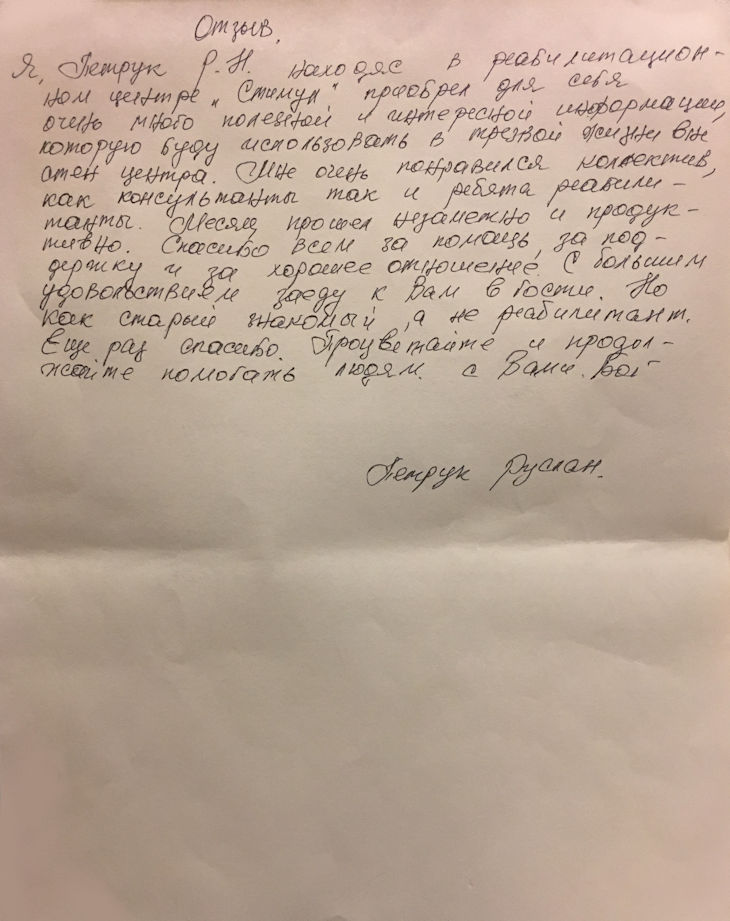 Отзыв.
Я, Петрук Р.Н. находяс в реабилитацион-
ном центре „Стимул" приобрел для себя
очень много полезной и интересной информации,
которую буду использовать в трезвой жизни вне
стен центра. Мне очень понравился коллектив,
как консультанты так и ребята реабили-
танты. Месяц прошел незаметно и продук-
тивно. Спасибо всем за помощь, за под-
держку и за хорошее отношение. С большим
удовольствием заеду к Вам в гости. Но
как старый знакомый, а не реабилитант.
Еще раз спасибо. Процветайте и продол-
жайте помогать людям. с Вами. Бог
Петрук Руслан.